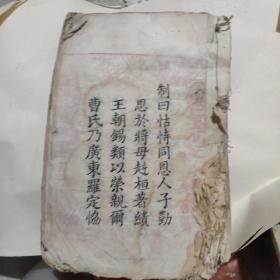 制曰怙恃同恩人子勤
思於將母赳桓著績
王朝錫類以榮親爾
曹氏乃廣東羅定協